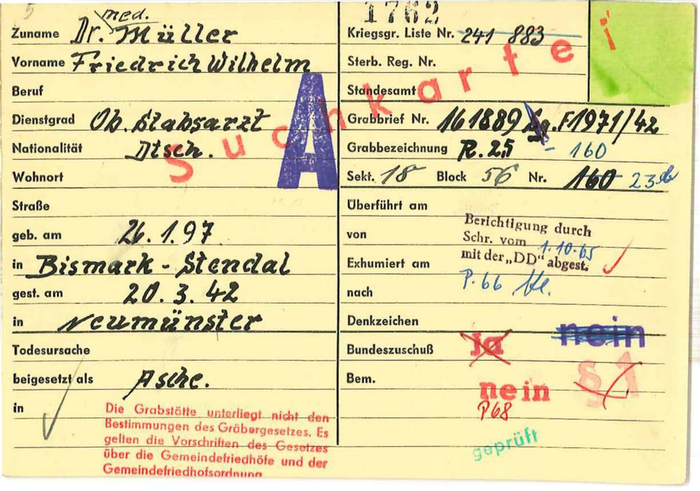 5
1762
Suchkartei
A
Zuname Dr. med. Müller
Vorname Friedrich Wilhelm
Beruf
Dienstgrad Ob. Stabsarzt
Nationalität Dtsch.
Wohnort
Straße
geb. am 26.1.97
in Bismark-Stendal
gest. am 20.3.42
in Neumünster
Todesursache
beigesetzt als Asche.
in
Die Grabstätte unterliegt nicht den
Bestimmungen des Gräbergesetzes. Es
gelten die Vorschriften des Gesetzes
über die Gemeindefriedhöfe und der
Gemeindefriedhofsordnung
Kriegsgr. Liste Nr. 241 883
Sterb. Reg. Nr.
Standesamt
Grabbrief Nr. 161889 F1971/42
Grabbezeichnung R.25 - 160
Sekt. 18 Block 56 Nr. 160 23
Überführt am
von
Exhumiert am
nach
Berichtigung durch
Schr. vom 1.10.65
mit der „DD" abgest.
P.66
Denkzeichen
Bundeszuschuß Ja nein
Bem. nein §1
P68
geprüft